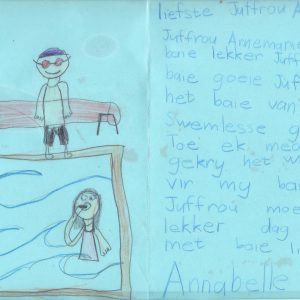 liefste Juffrou A
Juffrou Annemarie
baie lekker Juff
baie goeie Juff
het baie van
Swemlesse g
Toe ek med
gekry het w
vir my ba
Juffrou moe
lekker dag
met baie li
Annabelle